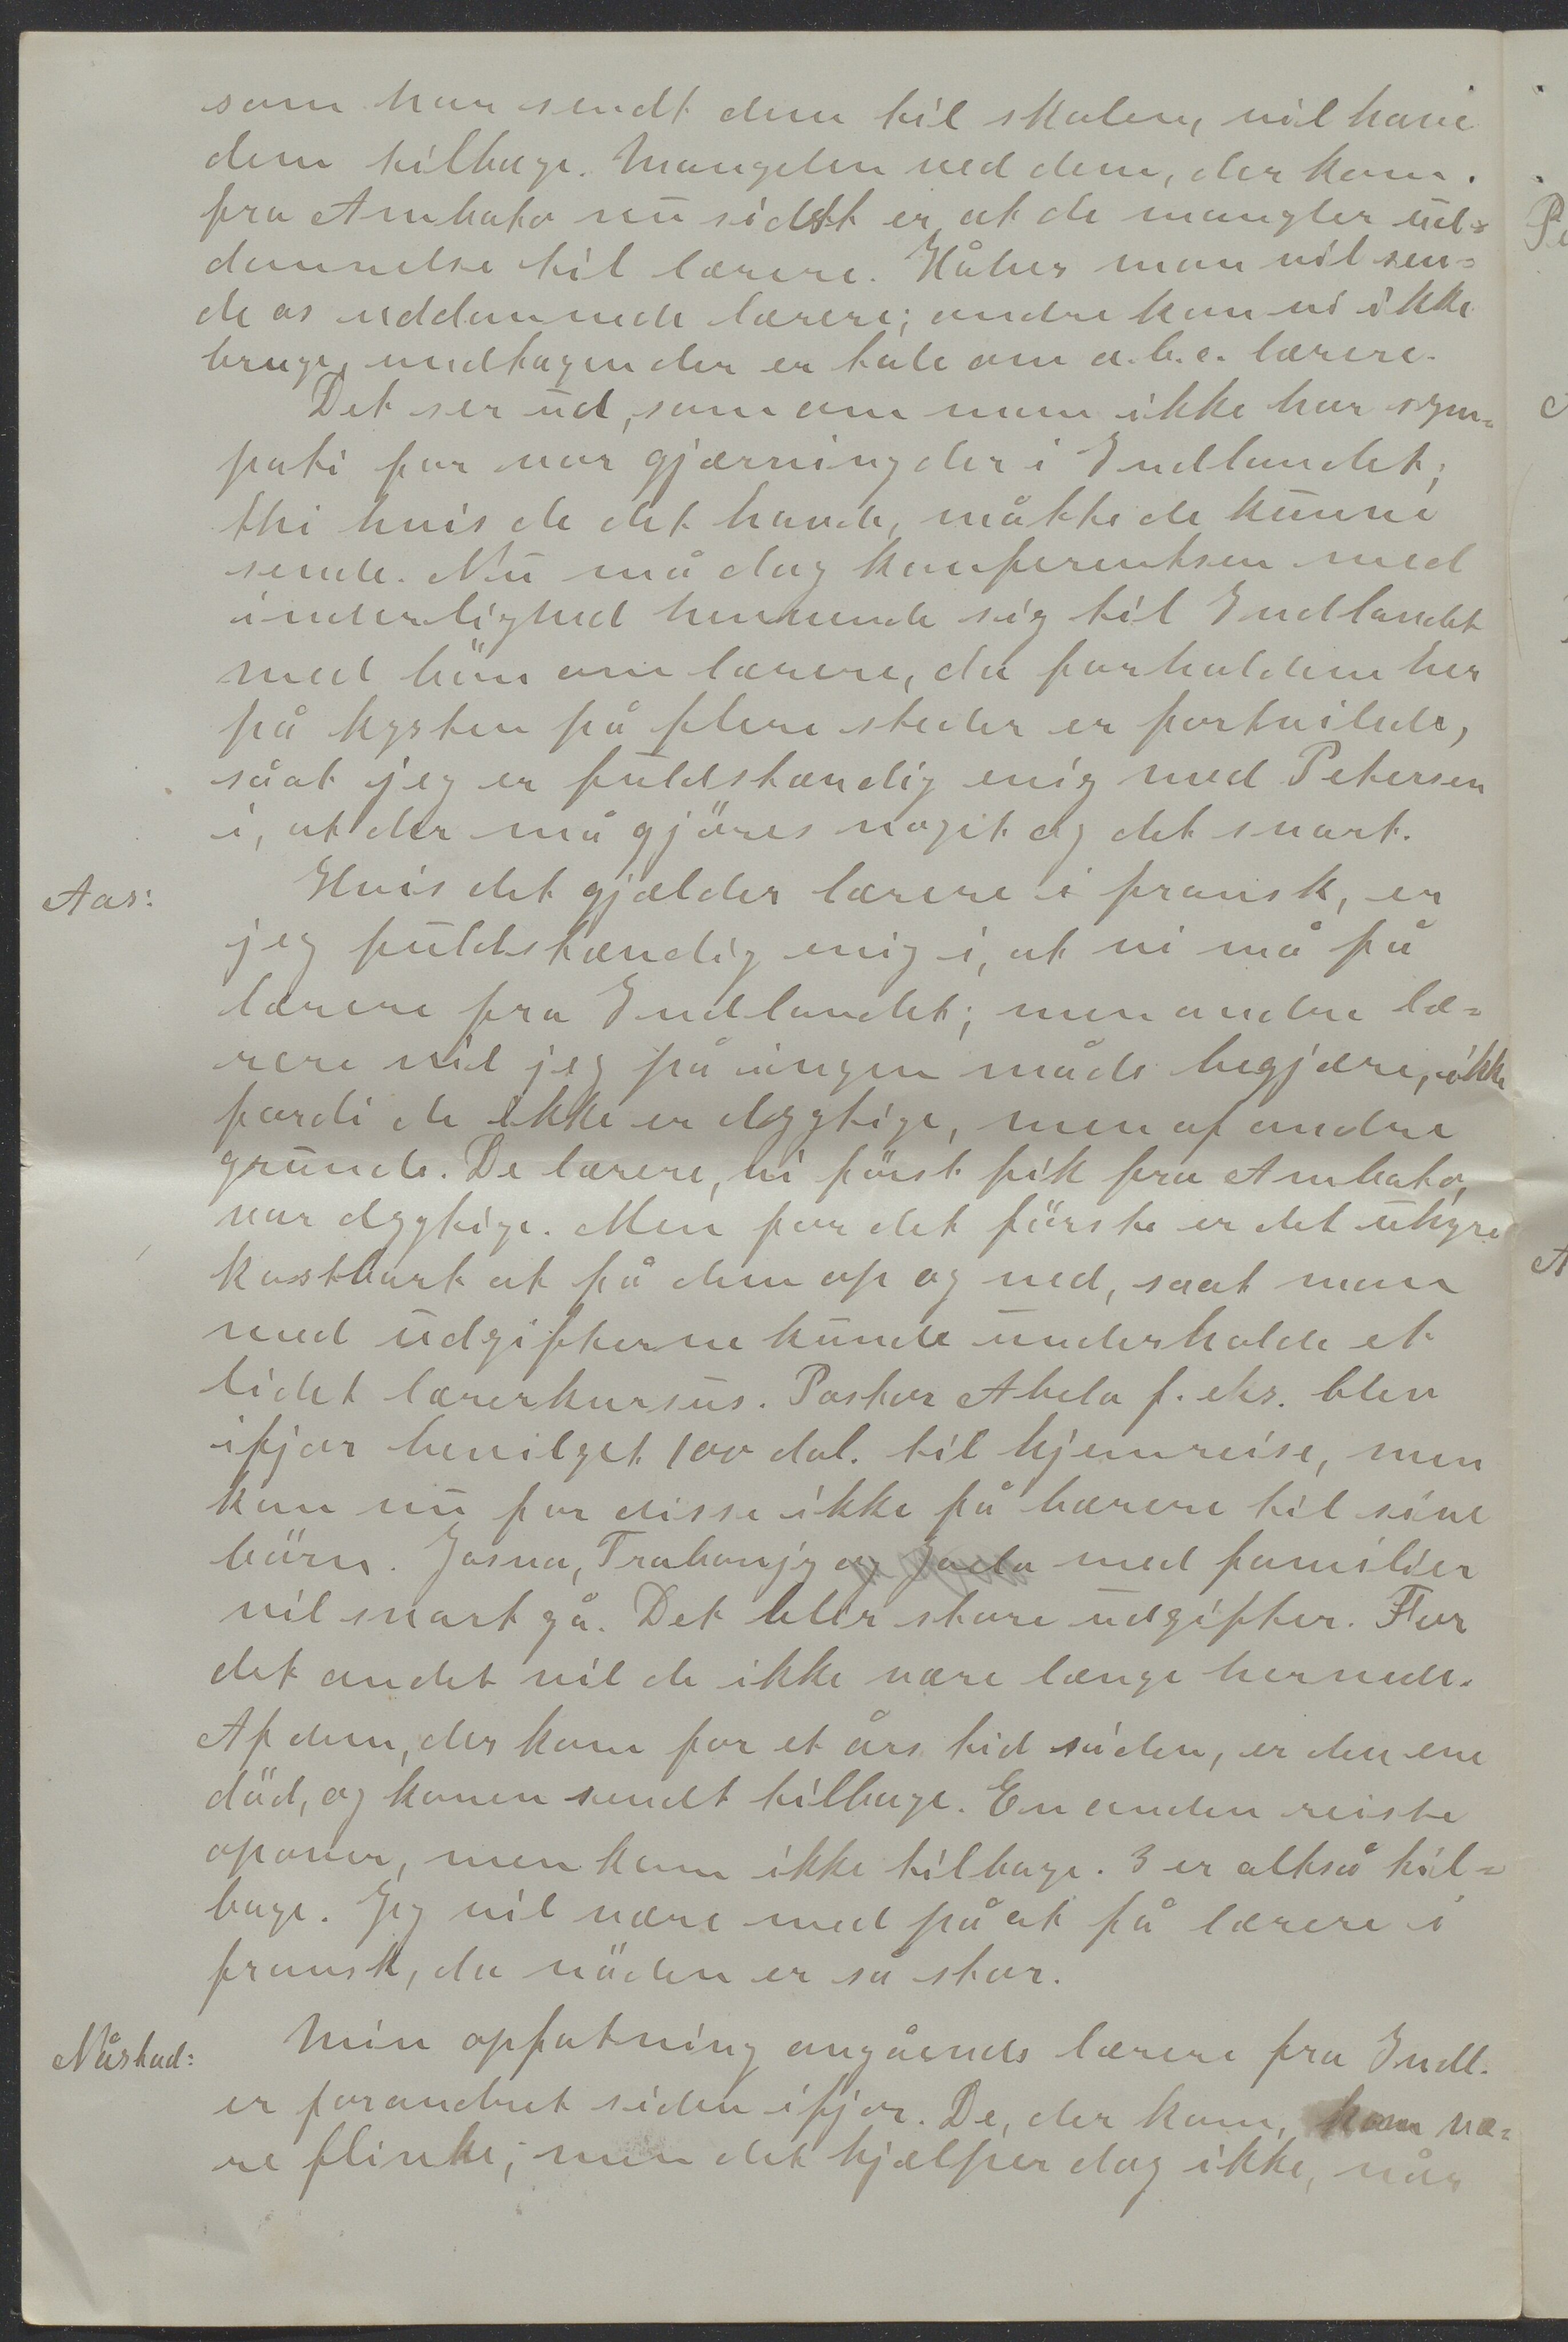 som har sendt dem til skolen, vil have
dem tilbage. Mangelen ved dem, der kom
fra Ambato nu sidst er at de mangler ud=
dannelse til lærere. Håber man vil sen=
de os uddannede lærere; andre kan vi ikke
bruge, undtagen der er tale om a.b.c. lærere.
Det ser ud, som om man ikke har sym=
pati for vor gjærning der i Indlandet;
thi hvis de det havde, måtte de kunne
sende. Nu må dog konferentsen med
inderlighed henvende sig til Indlandet
med bön om lærere, da forholdene her
på kysten på flere steder er fortvilede,
såat jeg er fuldstændig enig med Petersen
i, at der må gjöres noget og det snart.
Aas: Hvis det gjælder lærere i fransk, er
jeg fuldstændig enig i, at vi må få
lærere fra Indlandet; men andre læ=
rere vil jeg på ingen måde begjære, ikke
fordi de ikke er dygtige, men af andre
grunde. De lærere, vi först fik fra Ambato,
var dygtige. Men for det förste er det uhyre
kostbart at få dem op og ned, saat man
med udgifterne kunde underholde et
lidet lærerkursus. Pastor Abela f. eks. blev
ifjor bevilget 100 dol. til hjemreise, men
kan nu for disse ikke få bærere til sine
börn. Josva, Trabonjy og Joela med familier
vil snart gå. Det blir store udgifter. For
det andet vil de ikke være længe hernede.
Af dem, der kom for et års tid siden, er den ene
död, og konen sendt tilbage. En anden reiste
opover, men kom ikke tilbage. 3 er altså til=
bage. Jeg vil være med på at få lærere i
fransk, da nöden er så stor.
Nåstad: Min opfatning angående lærere fra Indl.
er forandret siden ifjor. De, der kom, kan væ=
re flinke; men det hjælper dog ikke, når